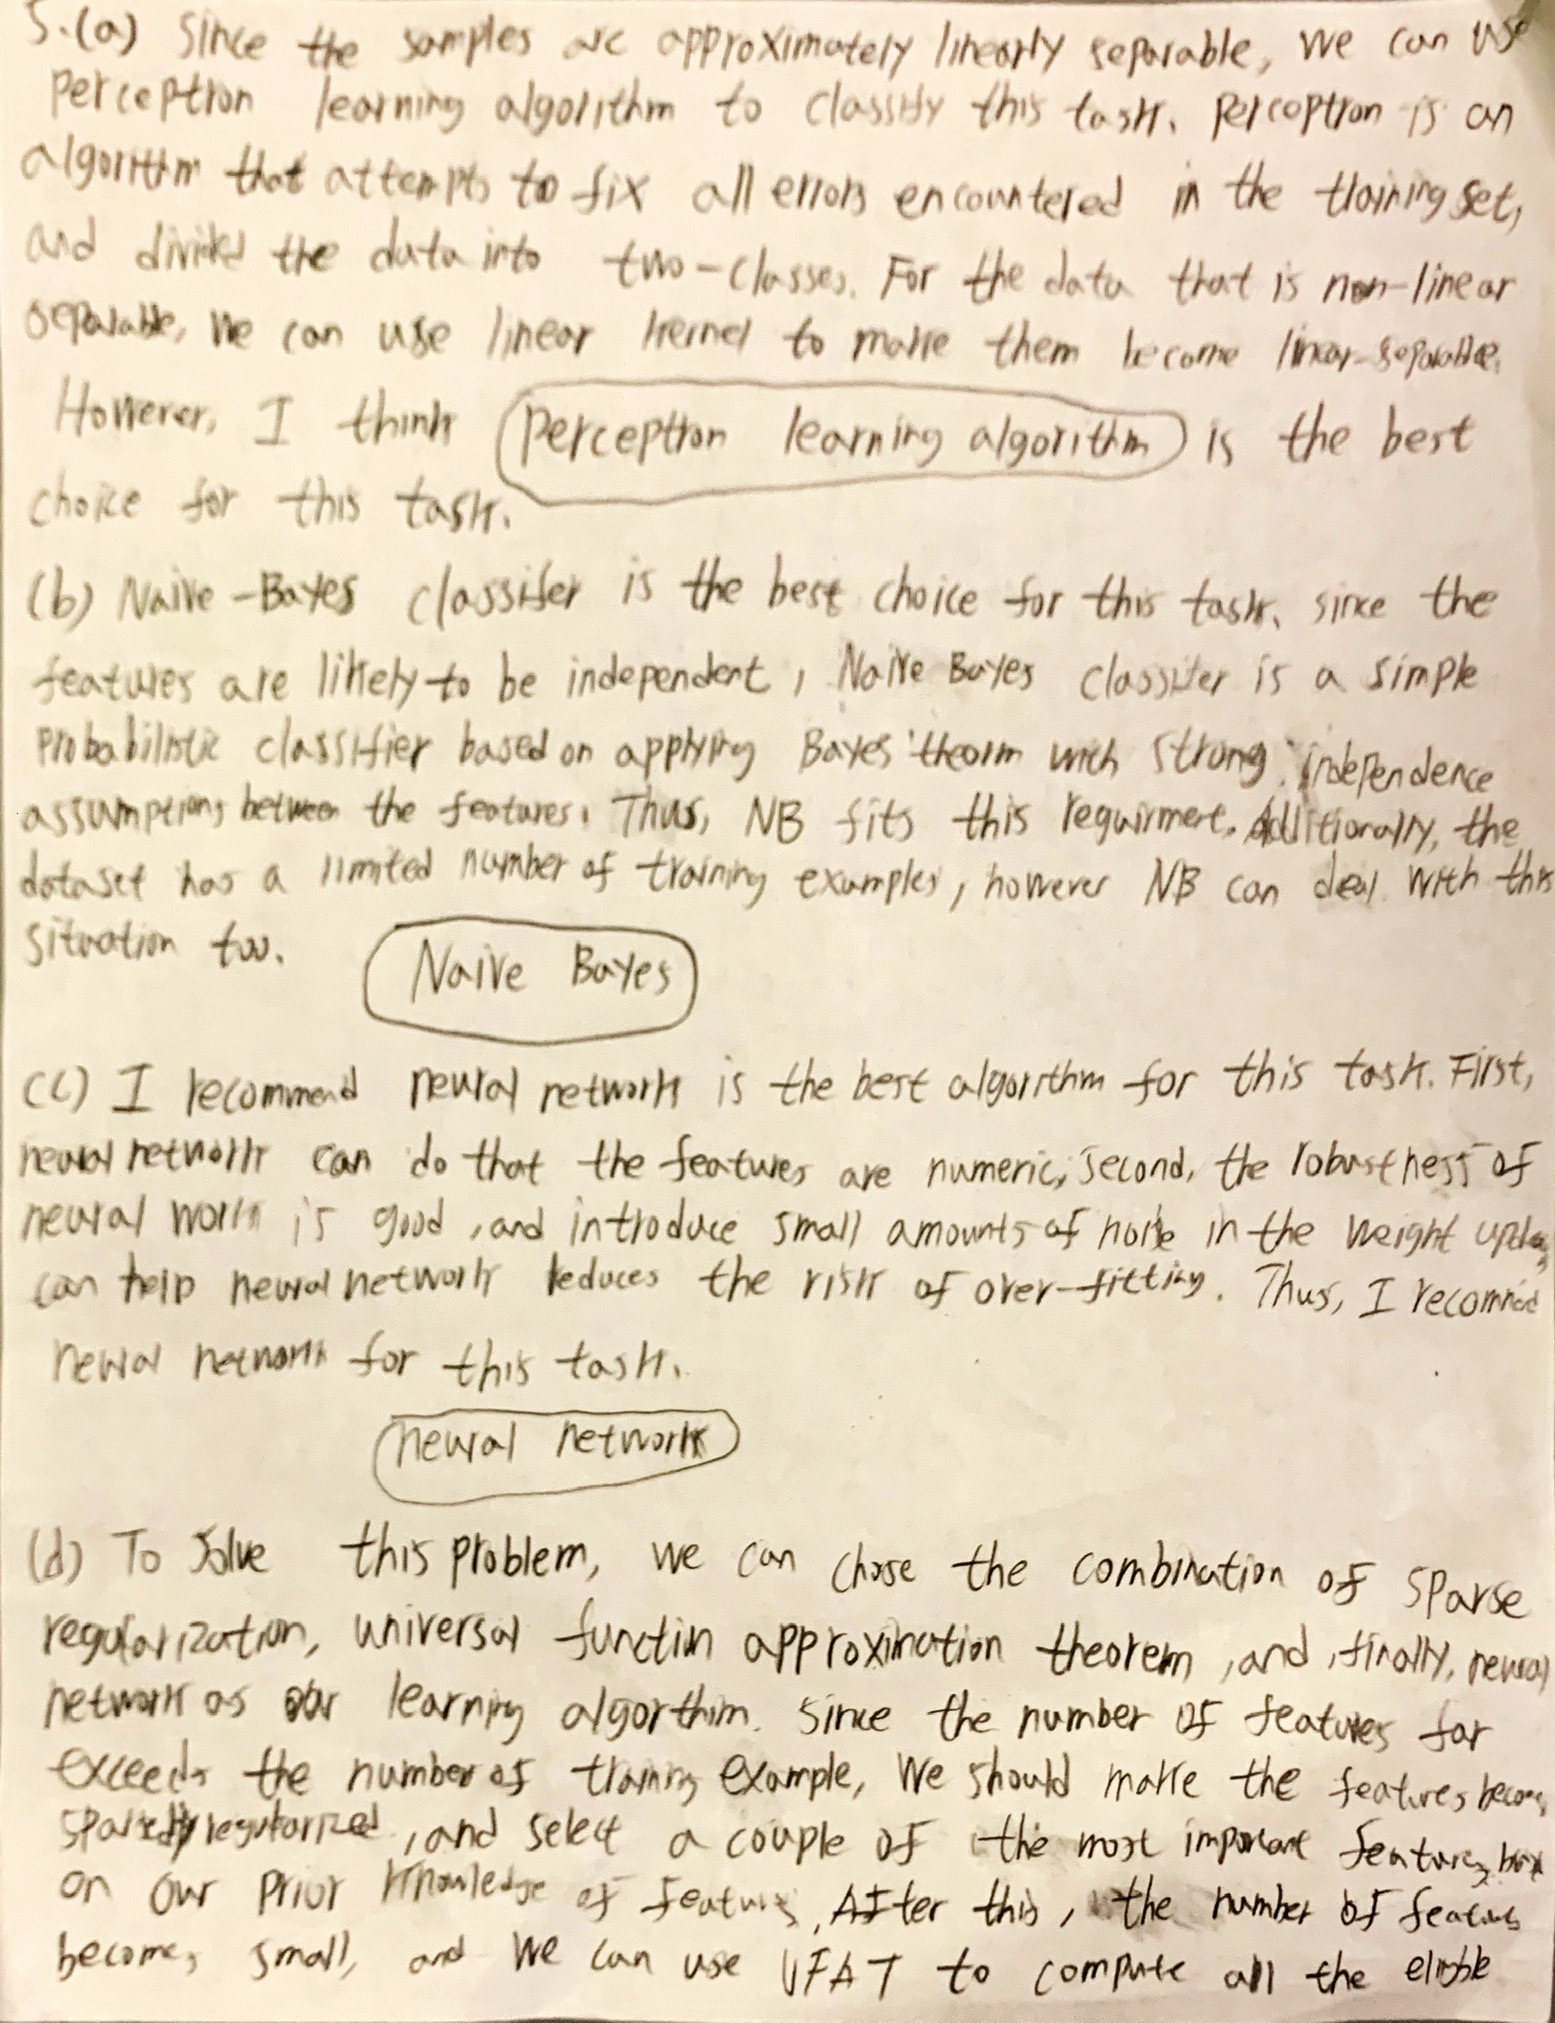 5.(a) Since the samples are approximately linearly separable, we can use
perceptron learning algorithm to classify this task. perceptron is an
algorithm that attempts to fix all errors encountered in the training set,
and divided the data into two-classes. For the data that is non-linear
separable, we can use linear kernel to make them become linear-separable.
However, I think perceptron learning algorithm is the best
choice for this task.
(b) Naive-Bayes classifer is the best choice for this task. since the
features are likely to be independent, Naive Bayes classifer is a simple
probabilistic classifier based on applying Bayes' theorm with strong independence
assumptions between the features. Thus, NB fits this requirment. Additionally, the
dataset has a limited number of training examples, however NB can deal with this
situation too.
Naive Bayes
(c) I recommend neural network is the best algorithm for this task. First,
neural network can do that the features are numeric, second, the robustness of
neural work is good, and introduce small amounts of noise in the weight
can help neural network reduces the risk of over-fitting. Thus, I recommend
neural network for this task.
neural network
(d) To solve this problem, we can chose the combination of sparse
regularization, universal function approximation theorem, and, finally, neural
network as our learning algorthim. Since the number of features far
exceeds the number of training example, we should make the features become
regularized, and select a couple of the most important features
on our prior knowledge of features. After this, the number of features
becomes small, and we can use UFAT to compute all the